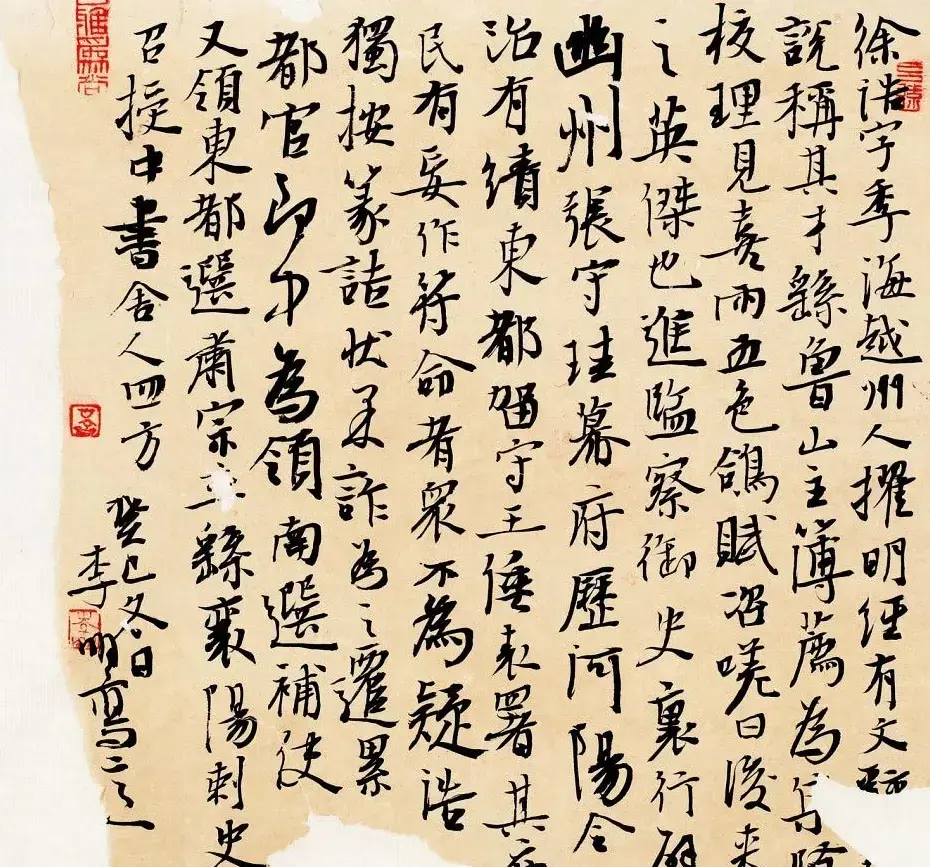 徐浩字季海越州人擢明經有文
說稱其才繇魯山主簿薦為
校理見喜雨五色鴿賦咨嗟曰後来
之英傑也進監察御史裏行
幽州張守珪幕府歷河陽令
治有績東都留守王倕表署其府
民有妄作符命者衆不為疑浩
獨按篆詰狀果詐為之遷累
都官郎中為領南選補使
又領東都選肅宗立繇襄陽刺史
召授中書舍人四方
癸巳冬日
李明寫